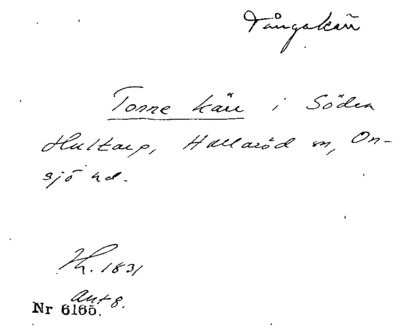 Tångakärr
Torne Kärr i Södra
Hultarp, Hallaröd m, On-
sjö hd.
Th. 1831
akt 8.
Nr 6165.